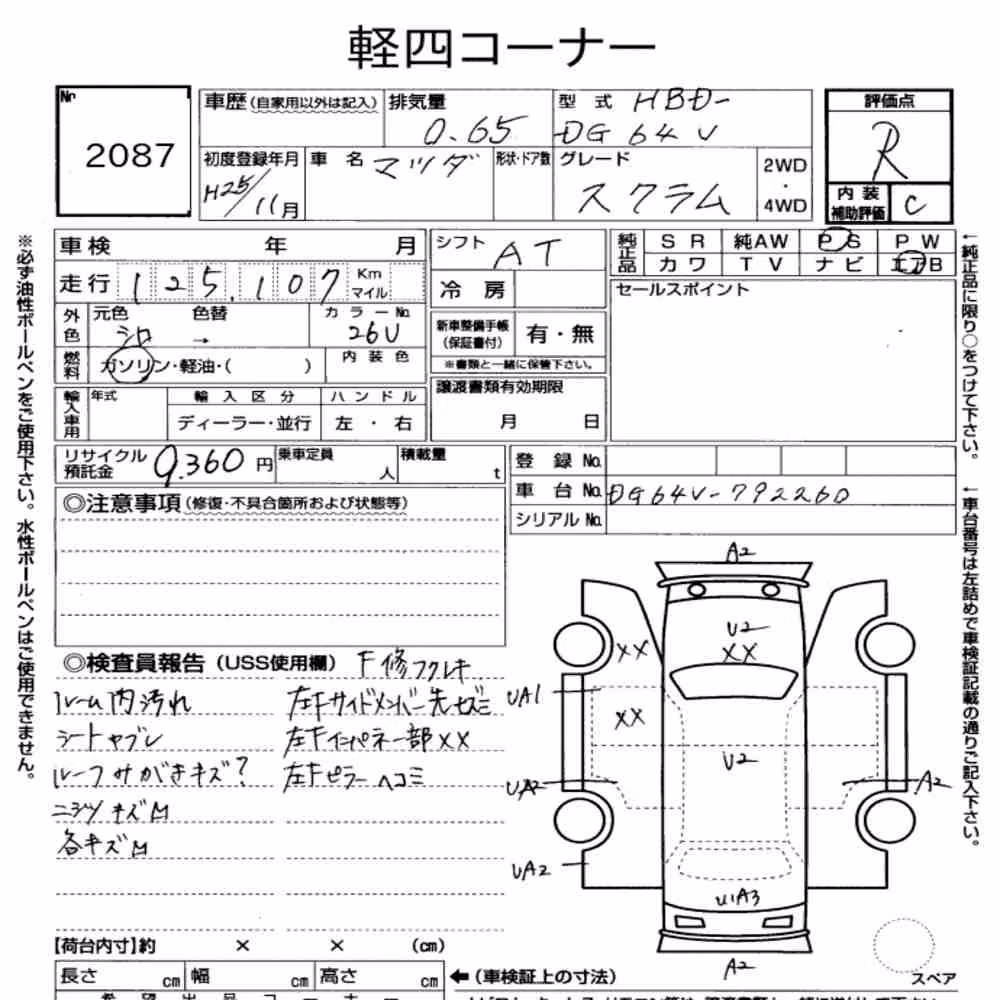 軽四コーナー
No.
2087
車歴(自家用以外は記入)
排気量
0.65
型式 HBD-
DG64V
評価点
R
初度登録年月
H25/11月
車名 マツダ
形状・ドア数
グレード
スクラム
2WD
・
4WD
内装
補助評価
C
車検 年 月
走行 125,107 Km
マイル
外色
元色 色替
シロ →
カラーNo.
26U
燃料
ガソリン・軽油・( )
内装色
輸入車用
年式
輸入区分
ディーラー・並行
ハンドル
左・右
シフト AT
冷房
新車整備手帳
(保証書付)
有・無
※書類と一緒に保管下さい。
譲渡書類有効期限
月 日
純正品
SR 純AW PS PW
カワ TV ナビ エアB
セールスポイント
リサイクル
預託金
9,360円
乗車定員
人
積載量
t
登録No.
車台No. DG64V-792260
シリアルNo.
◎注意事項(修復・不具合箇所および状態等)
◎検査員報告(USS使用欄)
F修フクレキ
ルーム内汚れ
シートヤブレ
ルーフサがきキズ?
ニジツキズ凹
各キズ凹
左Fサイドメンバー先セズミ
左Fインパネ一部XX
左Fピラーヘコミ
A2
U2
XX
XX
UA1
XX
U2
UA2
A2
UA2
U1A3
A2
スペア
【荷台内寸】約 × × (cm)
長さ cm
幅 cm
高さ cm
←(車検証上の寸法)
※必ず油性ボールペンをご使用下さい。水性ボールペンはご使用できません。
←純正品に限り○をつけて下さい。
←車台番号は左詰めで車検証記載の通りご記入下さい。